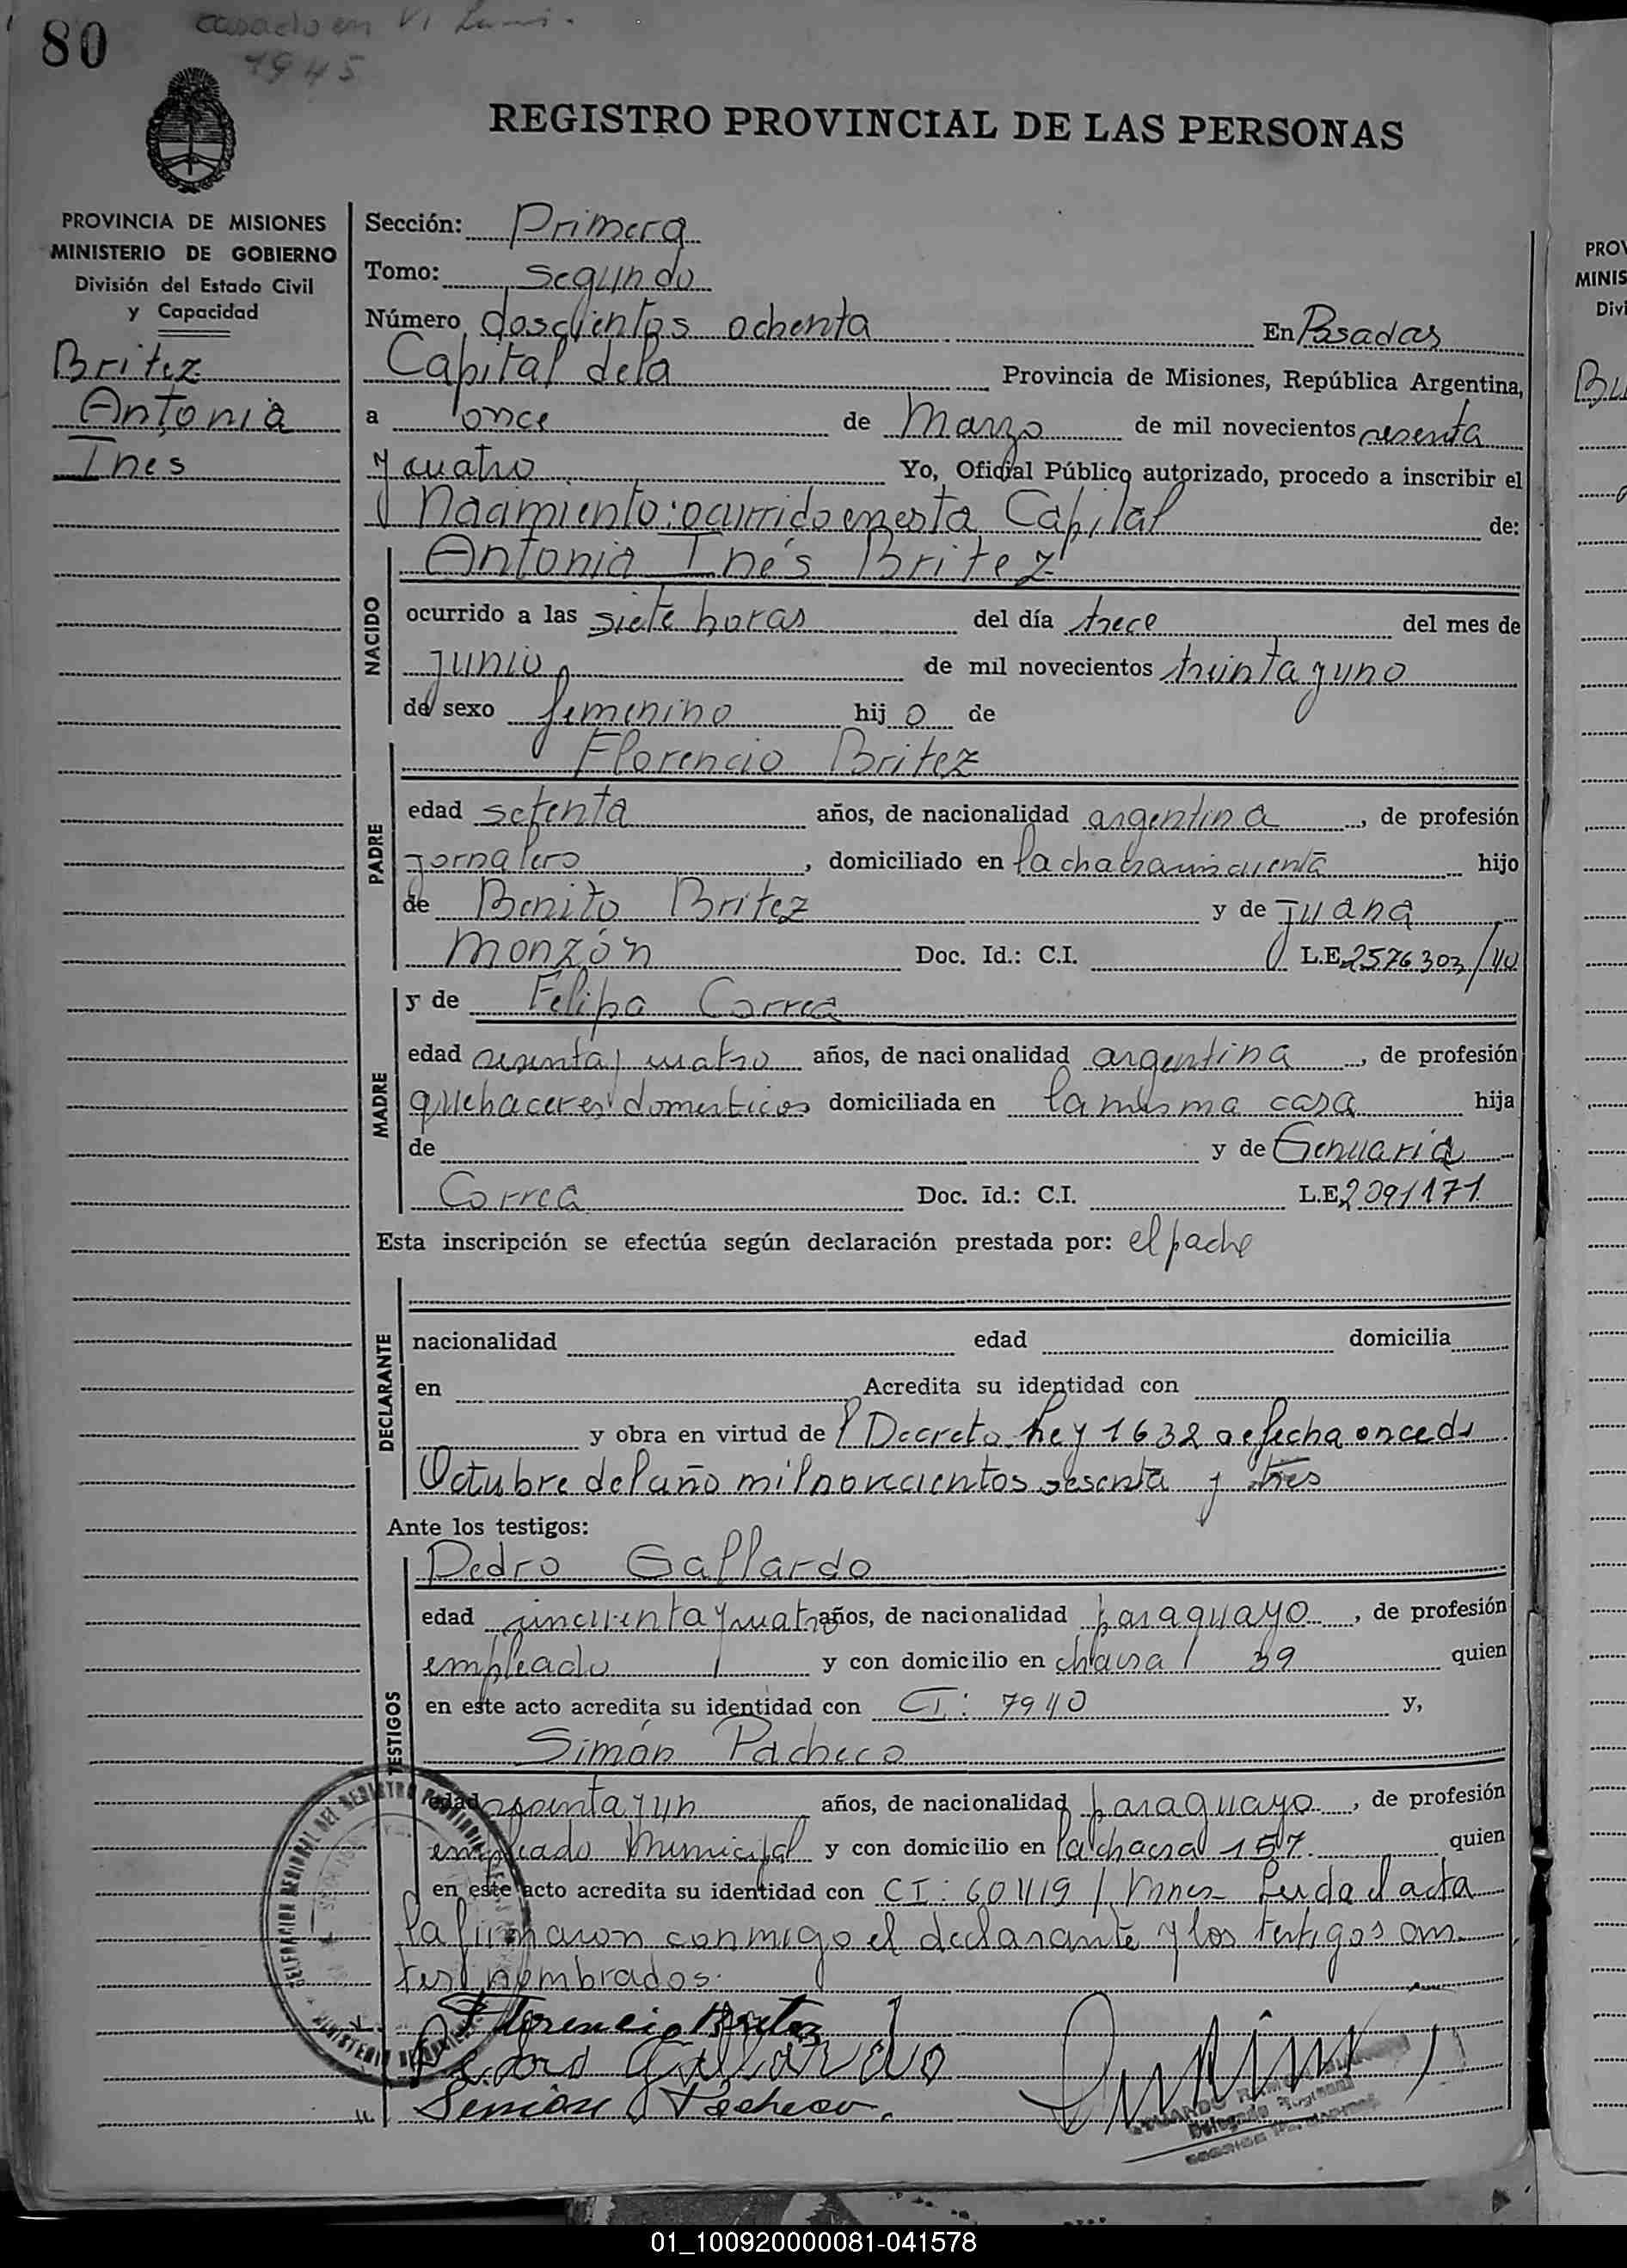 80
casado en
1945
REGISTRO PROVINCIAL DE LAS PERSONAS
PROVINCIA DE MISIONES
MINISTERIO DE GOBIERNO
División del Estado Civil
y Capacidad
Britez
Antonia
Ines
Sección: Primera
Tomo: segundo
Número doscientos ochenta En Posadas
Capital de la Provincia de Misiones, República Argentina,
a once de Marzo de mil novecientos sesenta
y cuatro Yo, Oficial Público autorizado, procedo a inscribir el
Nacimiento: ocurrido en esta Capital de:
NACIDO
Antonia Inés Britez
ocurrido a las siete horas del día trece del mes de
junio de mil novecientos treinta y uno
de sexo femenino hijo de
PADRE
Florencio Britez
edad setenta años, de nacionalidad argentina, de profesión
jornalero, domiciliado en la chacra cincuenta hijo
de Benito Britez y de Juana
Monzón Doc. Id.: C.I. L.E. 2576303/40
MADRE
y de Felipa Correa
edad sesenta y cuatro años, de nacionalidad argentina, de profesión
quehaceres domesticos domiciliada en la misma casa hija
de y de Genuaria
Correa Doc. Id.: C.I. L.E. 2091171
Esta inscripción se efectúa según declaración prestada por: el padre
DECLARANTE
nacionalidad edad domicilia
en Acredita su identidad con
y obra en virtud de l Decreto Ley 1632 de fecha once de
Octubre del año mil novecientos sesenta y tres
Ante los testigos:
TESTIGOS
Pedro Gallardo
edad cincuenta y cuatro años, de nacionalidad paraguayo, de profesión
empleado y con domicilio en chacra 39 quien
en este acto acredita su identidad con CI: 7940 y,
Simón Pacheco
edad sesenta y un años, de nacionalidad paraguayo, de profesión
empleado Municipal y con domicilio en la chacra 157. quien
en este acto acredita su identidad con CI: 60119 / Mnes Leida el acta
la firmaron conmigo el declarante y los testigos an
tes nombrados.
Florencio Britez
Pedro Gallardo
Simón Pacheco
PROV
MINIS
Divi
01_100920000081-041578